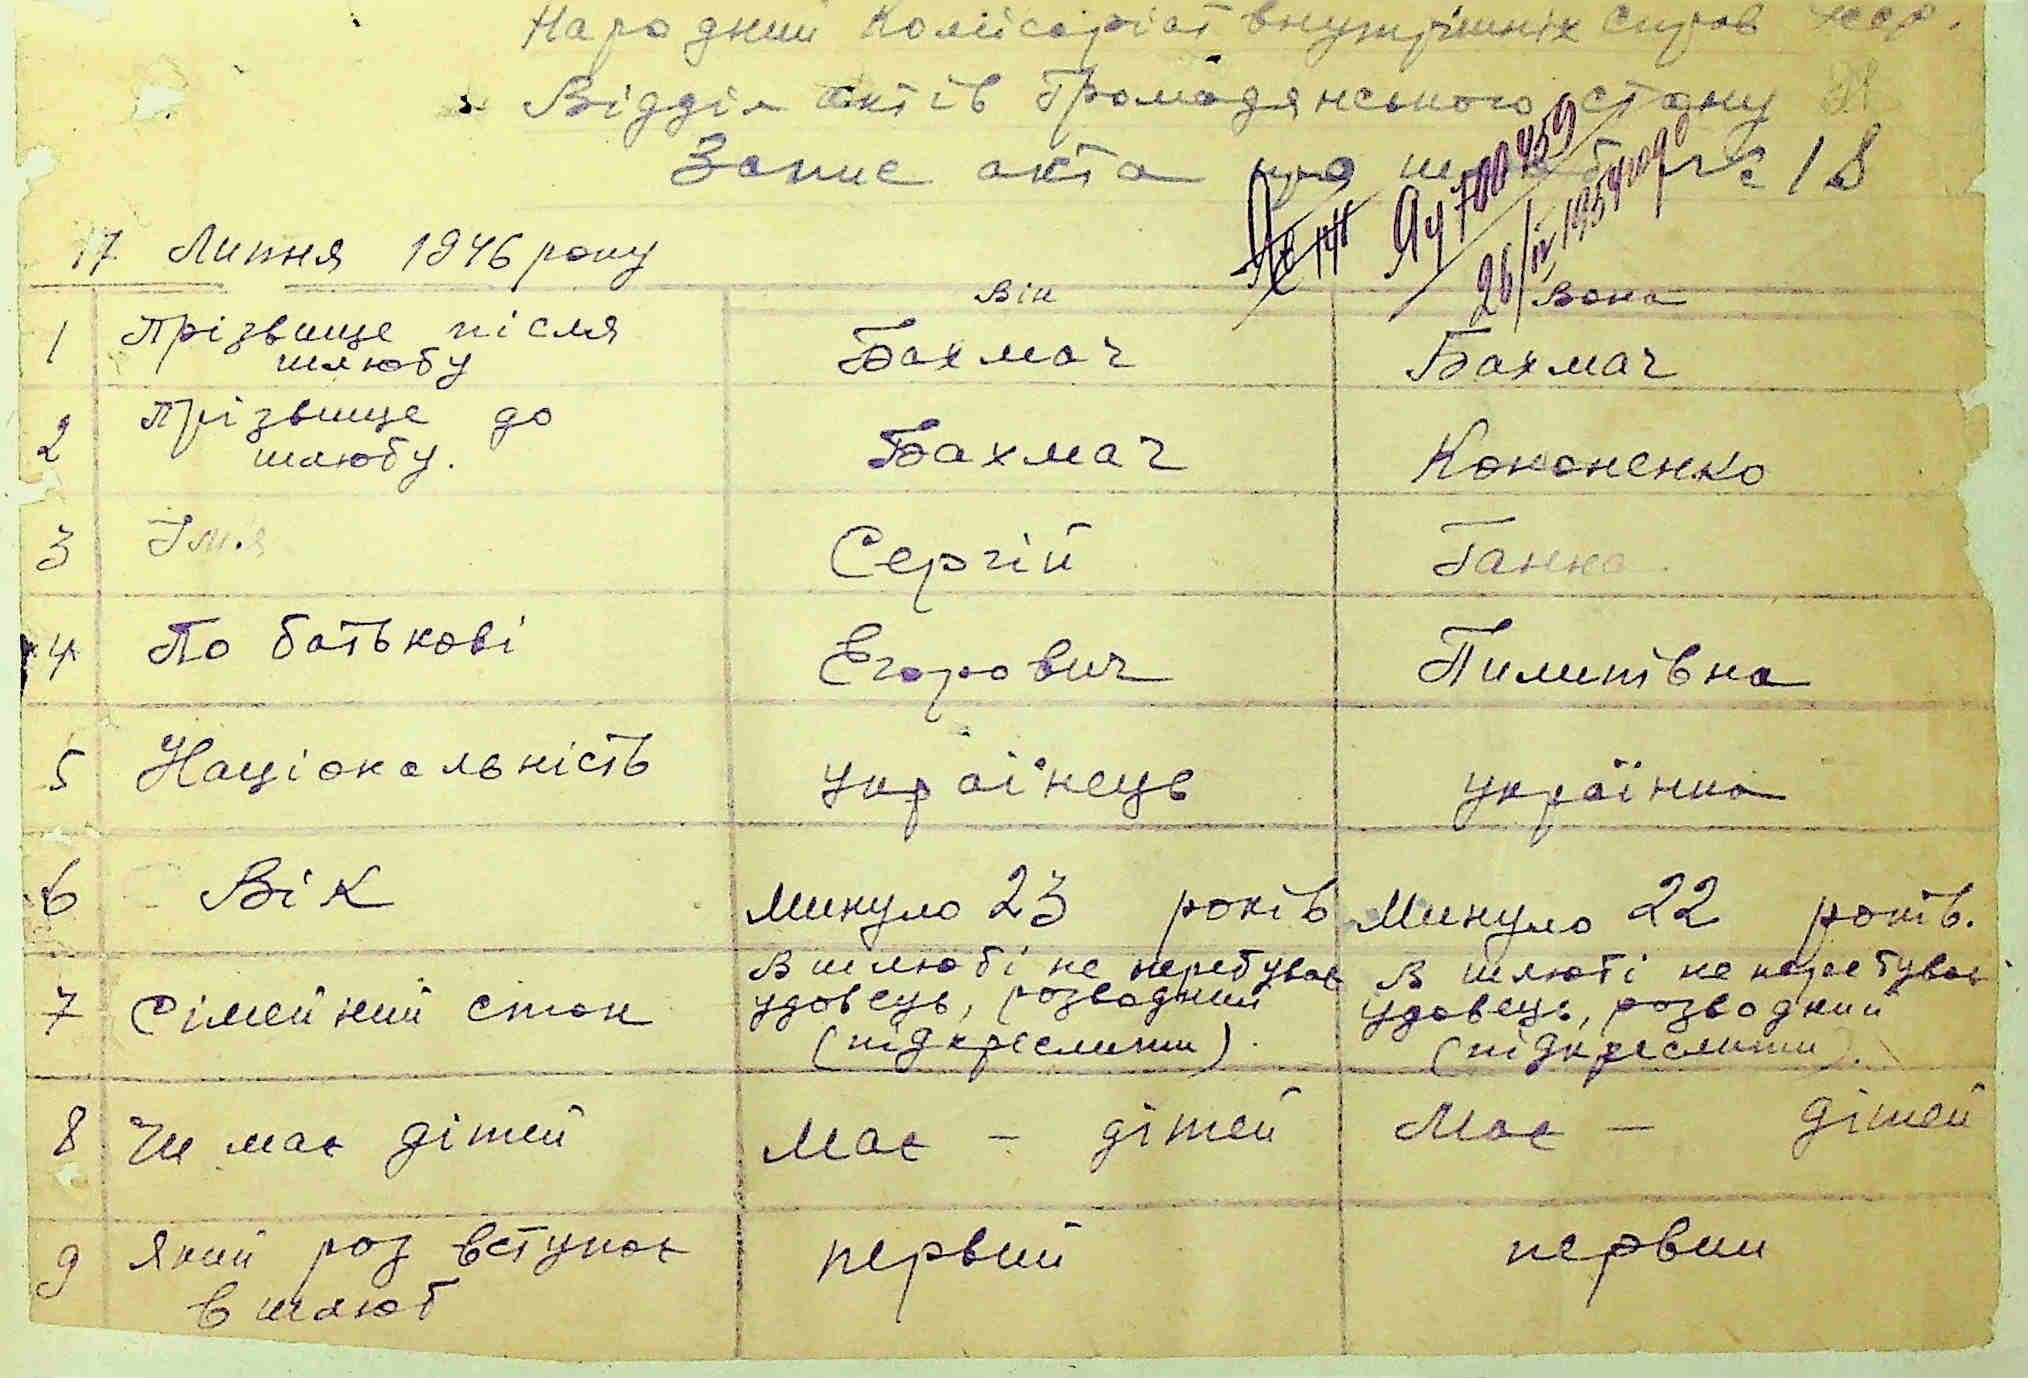 Народний Комісаріат внутрішніх справ УССР.
Відділ актів Громадянського стану
Запис акта про шлюб № 18
ЯУ 700459
26/IV 1954 года
17 Липня 1946 року
Він Вона
1 Прізвище після шлюбу Бахмач Бахмач
2 Прізвище до шлюбу. Бахмач Кононенко
3 Імя Сергій Ганна
4 По батькові Егорович Пилипівна
5 Національність українець українка
6 Вік Минуло 23 років Минуло 22 років.
7 Сімейний стан В шлюбі не перебував удовець, розводний (підкреслити). В шлюбі не перебував удовець, розводний (підкреслити).
8 Чи має дітей Має – дітей Має – дітей
9 Який раз вступає в шлюб первий первий